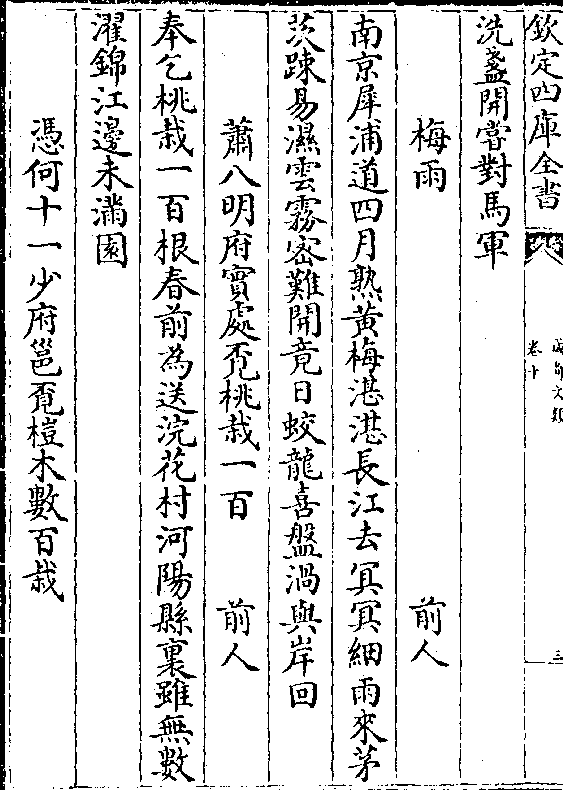 欽定四庫全書
成都文類
卷十
三
洗盞開嘗對馬軍
梅雨 前人
南京犀浦道四月熟黃梅湛湛長江去冥冥細雨來茅
茨踈易濕雲霧宻難開竟日蛟龍喜盤渦與岸回
蕭八明府實處覔桃栽一百 前人
奉乞桃栽一百根春前為送浣花村河陽縣裏雖無數
濯錦江邊未滿園
憑何十一少府邕覔榿木數百栽